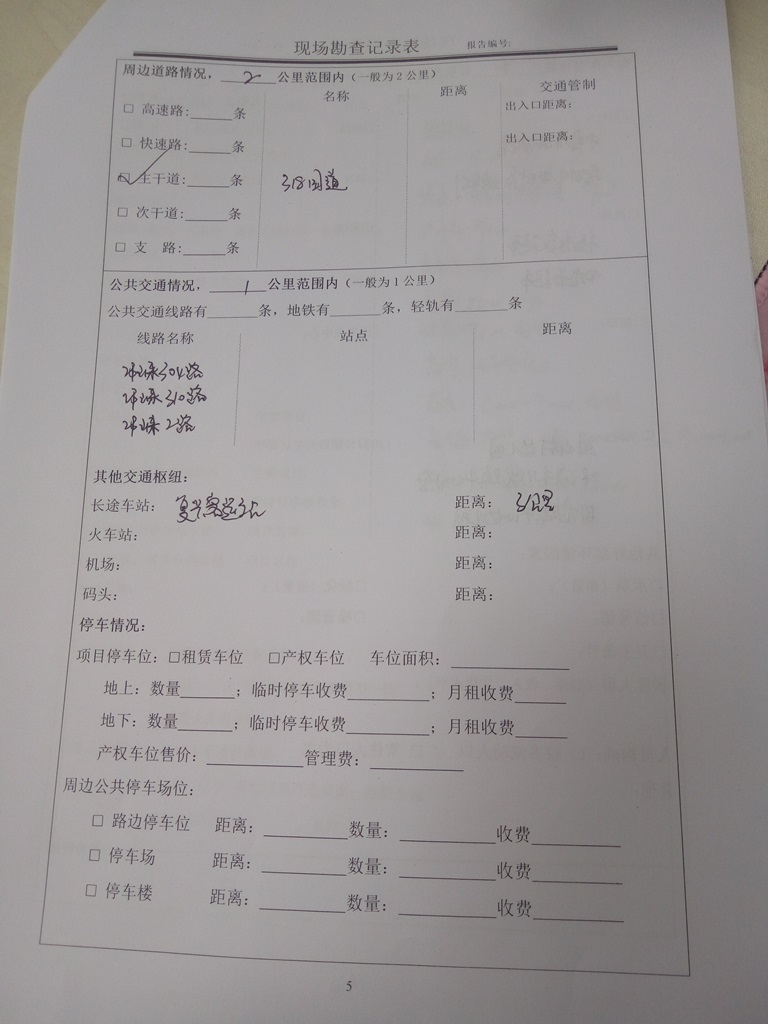 现场勘查记录表 报告编号:
周边道路情况，2公里范围内（一般为2公里）
名称 距离 交通管制
□ 高速路:______条 出入口距离：
□ 快速路:______条 出入口距离：
☑ 主干道:______条 318国道
□ 次干道:______条
□ 支 路:______条
公共交通情况，1公里范围内（一般为1公里）
公共交通线路有______条，地铁有______条，轻轨有______条
线路名称 站点 距离
304路
310路
2路
其他交通枢纽：
长途车站： 复兴客运站 距离： 3公里
火车站： 距离：
机场： 距离：
码头： 距离：
停车情况：
项目停车位：□租赁车位 □产权车位 车位面积：__________
地上：数量______；临时停车收费________；月租收费_____
地下：数量______；临时停车收费________；月租收费_____
产权车位售价：________管理费：________
周边公共停车场位：
□ 路边停车位 距离：________数量：________收费________
□ 停车场 距离：________数量：________收费________
□ 停车楼 距离：________数量：________收费________
5